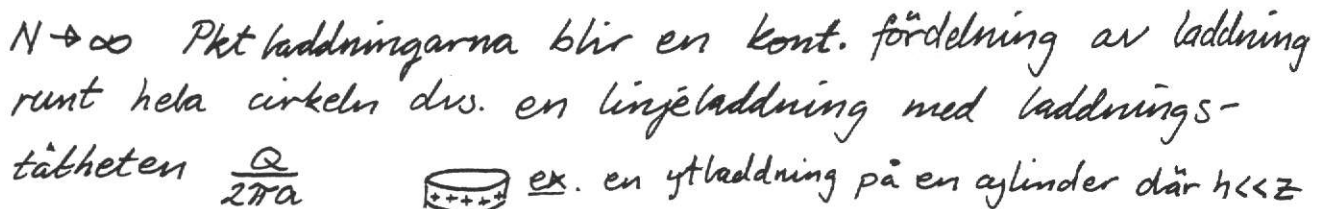 N→∞ Pkt laddningarna blir en kont. fördelning av laddning
runt hela cirkeln dvs. en linjeladdning med laddnings-
tätheten Q/2πa ++++ ex. en ytladdning på en cylinder där h<<z